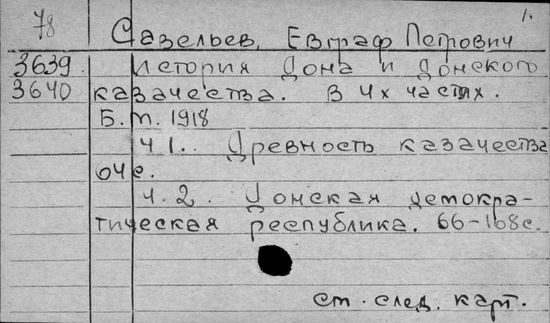 78 1.
Савельев, Евграф Петрович
3639 История Дона и Донского
3640 казачества. В 4х частях.
Б.м. 1918
ч 1. Древность казачества
64 с.
ч. 2. Донская демокра-
тическая республика. 66-168с.
См. след. карт.